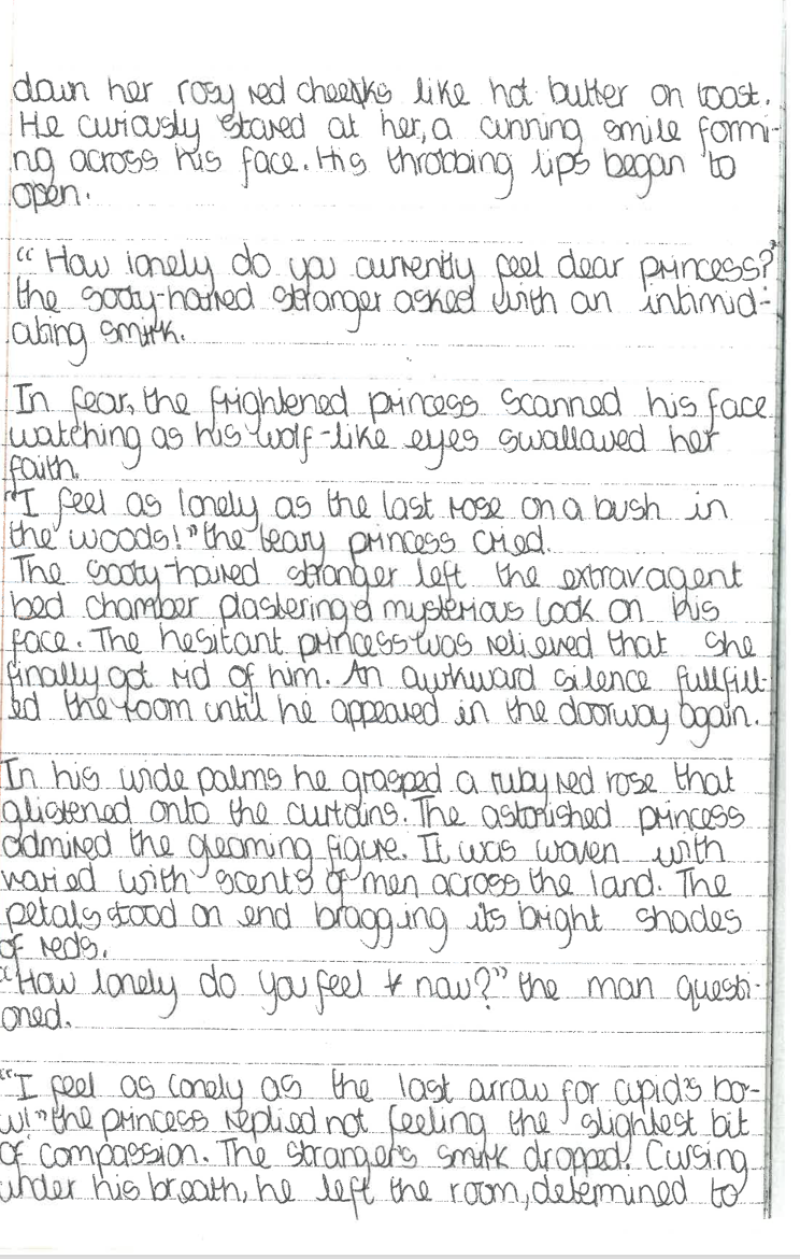 down her rosy red cheeks like hot butter on toast.
He curiously stared at her, a cunning smile formi-
ng across his face. His throbbing lips began to
open.
"How lonely do you currently feel dear princess?"
the sooty-haired stranger asked with an intimid-
ating smirk.
In fear, the frightened princess scanned his face
watching as his wolf-like eyes swallowed her
faith.
"I feel as lonely as the last rose on a bush in
the woods!" the teary princess cried.
The sooty-haired stranger left the extravagent
bed chamber plastering a mysterious look on his
face. The hesitant princess was relieved that she
finally got rid of him. An awkward silence fullfill-
ed the room until he appeared in the doorway again.
In his wide palms he grasped a ruby red rose that
glistened onto the curtains. The astonished princess
admired the gleaming figure. It was woven with
varied with scents of men across the land. The
petals stood on end bragging its bright shades
of reds.
"How lonely do you feel now?" the man questi-
oned.
"I feel as lonely as the last arrow for cupid's bo-
w!" the princess replied not feeling the slightest bit
of compassion. The stranger's smirk dropped. Cursing
under his breath, he left the room, determined to